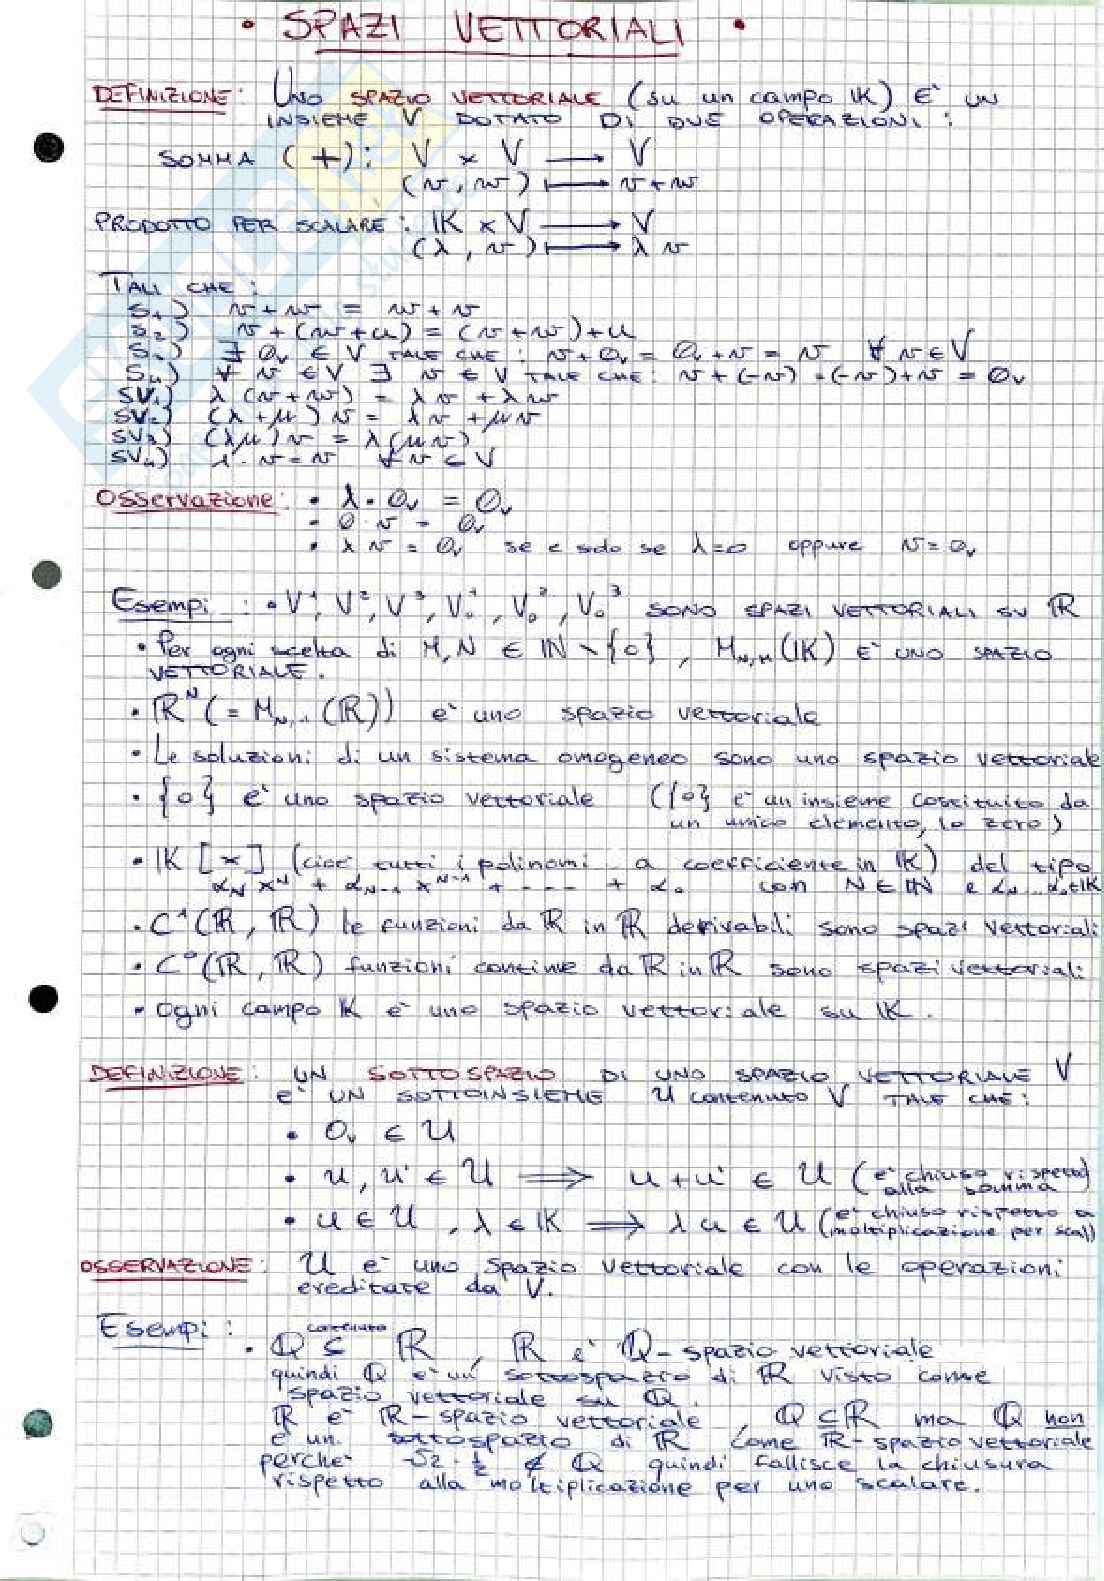 • SPAZI VETTORIALI •
DEFINIZIONE: UNO SPAZIO VETTORIALE (su un campo IK) E' UN
INSIEME V DOTATO DI DUE OPERAZIONI:
SOMMA (+): V × V ⟶ V
(v, w) ⟼ v+w
PRODOTTO PER SCALARE: IK × V ⟶ V
(λ, v) ⟼ λ v
TALI CHE:
S₁) v+w = w+v
S₂) v+(w+u) = (v+w)+u
S₃) ∃ 0ᵥ ∈ V TALE CHE: v+0ᵥ = 0ᵥ+v = v ∀ v∈V
S₄) ∀ v ∈V ∃ v ∈ V TALE CHE: v+(-v) = (-v)+v = 0ᵥ
SV₁) λ (v+w) = λv + λw
SV₂) (λ+μ) v = λv + μv
SV₃) (λμ)v = λ(μv)
SV₄) 1·v=v ∀v∈V
Osservazione: • λ·0ᵥ = 0ᵥ
• 0·v = 0ᵥ
• λv = 0ᵥ se e solo se λ=0 oppure v=0ᵥ
Esempi: • V¹, V², V³, V₀¹, V₀², V₀³ SONO SPAZI VETTORIALI SU IR
• Per ogni scelta di M,N ∈ IN \ {0}, M (IK) E' UNO SPAZIO
VETTORIALE.
• IRᴺ (= M (IR)) e' uno spazio vettoriale
• Le soluzioni di un sistema omogeneo sono uno spazio vettoriale
• {0} e' uno spazio vettoriale ({0} e' un insieme costituito da
un unico elemento, lo zero)
• IK [x] (cioe' tutti i polinomi a coefficiente in IK) del tipo
αₙxᴺ + αₙ₋₁xᴺ⁻¹ + - - - - + α₀ con N∈IN e αₙ...α₀∈IK
• C¹(IR, IR) le funzioni da IR in IR derivabili sono spazi vettoriali
• C⁰(IR, IR) funzioni continue da IR in IR sono spazi vettoriali
• Ogni campo IK e' uno spazio vettoriale su IK.
DEFINIZIONE: UN SOTTOSPAZIO DI UNO SPAZIO VETTORIALE V
E' UN SOTTOINSIEME U contenuto V TALE CHE:
• 0ᵥ ∈ U
• u, u' ∈ U ⟹ u+u' ∈ U (e' chiuso rispetto
alla somma)
• u∈U, λ∈IK ⟹ λu ∈ U (e' chiuso rispetto a
moltiplicazione per scal)
OSSERVAZIONE: U e' uno spazio vettoriale con le operazioni
ereditate da V.
Esempi: contenuto
• Q ⊆ IR, IR e' Q-spazio vettoriale
quindi Q e' un sottospazio di IR visto come
spazio vettoriale su Q.
IR e' IR-spazio vettoriale, Q⊆IR ma Q non
e' un sottospazio di IR come IR-spazio vettoriale
perche' √2·½ ∉ Q quindi fallisce la chiusura
rispetto alla moltiplicazione per uno scalare.